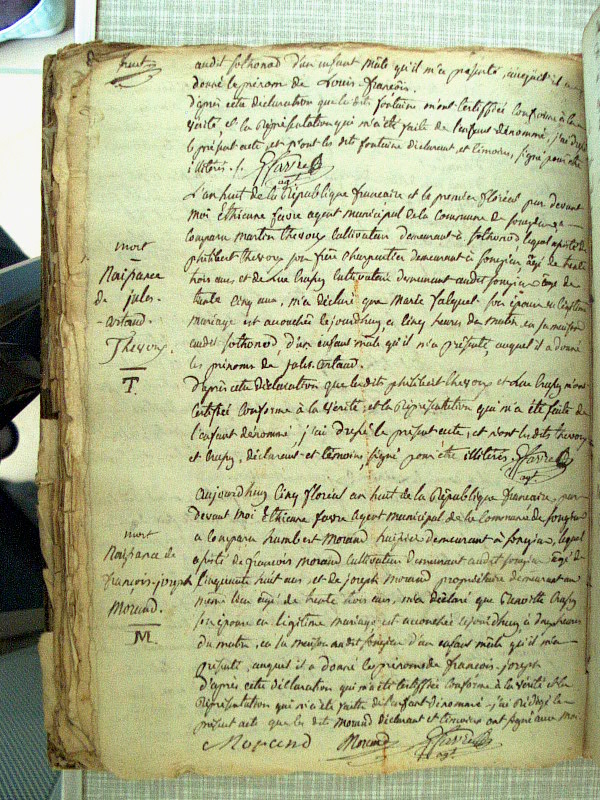 huit
audit Sothonod d'un enfant mâle qu'il m'a présenté, auquel il a
donné le prénom de Louis-françois.
d'après cette déclaration que les dits fontaine m'ont certifiée conforme à la
vérité, et la Représentation qui m'a été faite de l'enfant dénommé, j'ai dressé
le présent acte et n'ont les dits fontaine déclarant, et témoins, signé pour être
illiterés.
L'an huit de la République française et le premier floréal par devant
moi Ethienne favre agent municipal de la commune de songieu
comparu martin thevoz cultivateur demeurant à Sothonod lequel assisté de
philibert thevoz son frère charpentier demeurant à songieu, âgé de trente
trois ans, et de Luc Crussy cultivateur demeurant audit songieu âgé de
trente cinq ans, m'a déclaré que marie falquet son épouse en légitime
mariage est accouchée ce jourdhuy à cinq heures du matin, en sa maison
audit sothonod d'un enfant mâle qu'il m'a présenté, auquel il a donné
les prénoms de jules-artaud.
D'après cette déclaration que les dits philibert thevoz et Luc Crussy m'ont
certifié conforme à la vérité, et la Représentation qui m'a été faite de
l'enfant dénommé, j'ai dressé le présent acte, et n'ont les dits thevoz
et Crussy, déclarant et témoins, signé pour être illiterés.
mort
Naissance
de jules-
artaud.
Thevoz.
T.
Aujourdhuy cinq floréal an huit de la République française, par
devant moi Ethienne favre agent municipal de la commune de songieu
a comparu humbert Morand huissier demeurant à songieu, lequel
assisté de françois Morand cultivateur demeurant audit songieu âgé de
cinquante huit ans, et de joseph Morand propriétaire demeurant au
même lieu âgé de trente trois ans, m'a déclaré que Crussy
son épouse en légitime mariage est accouchée ce jourdhuy à heures
du matin, en sa maison audit songieu d'un enfant mâle qu'il m'a
présenté, auquel il a donné les prénoms de françois-joseph
d'après cette déclaration qui m'a été certifiée conforme à la vérité et la
Représentation qui m'a été faite de l'enfant dénommé, j'ai rédigé le
présent acte que les dits Morand déclarant et témoins ont signé avec moi.
mort
Naissance de
françois-joseph
Morand.
M.
Morand Morand